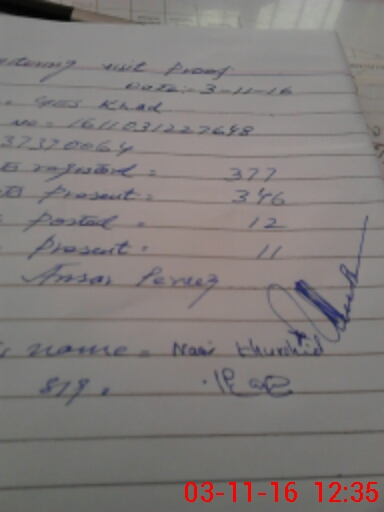 itoring visit Proof
Date:- 3-11-16
GES Khad
no = 1611031227648
37370064
registerd = 377
Present = 346
Posted = 12
Present = 11
Ansar Pervez
name = Nasir Khurshid
819.
03-11-16 12:35